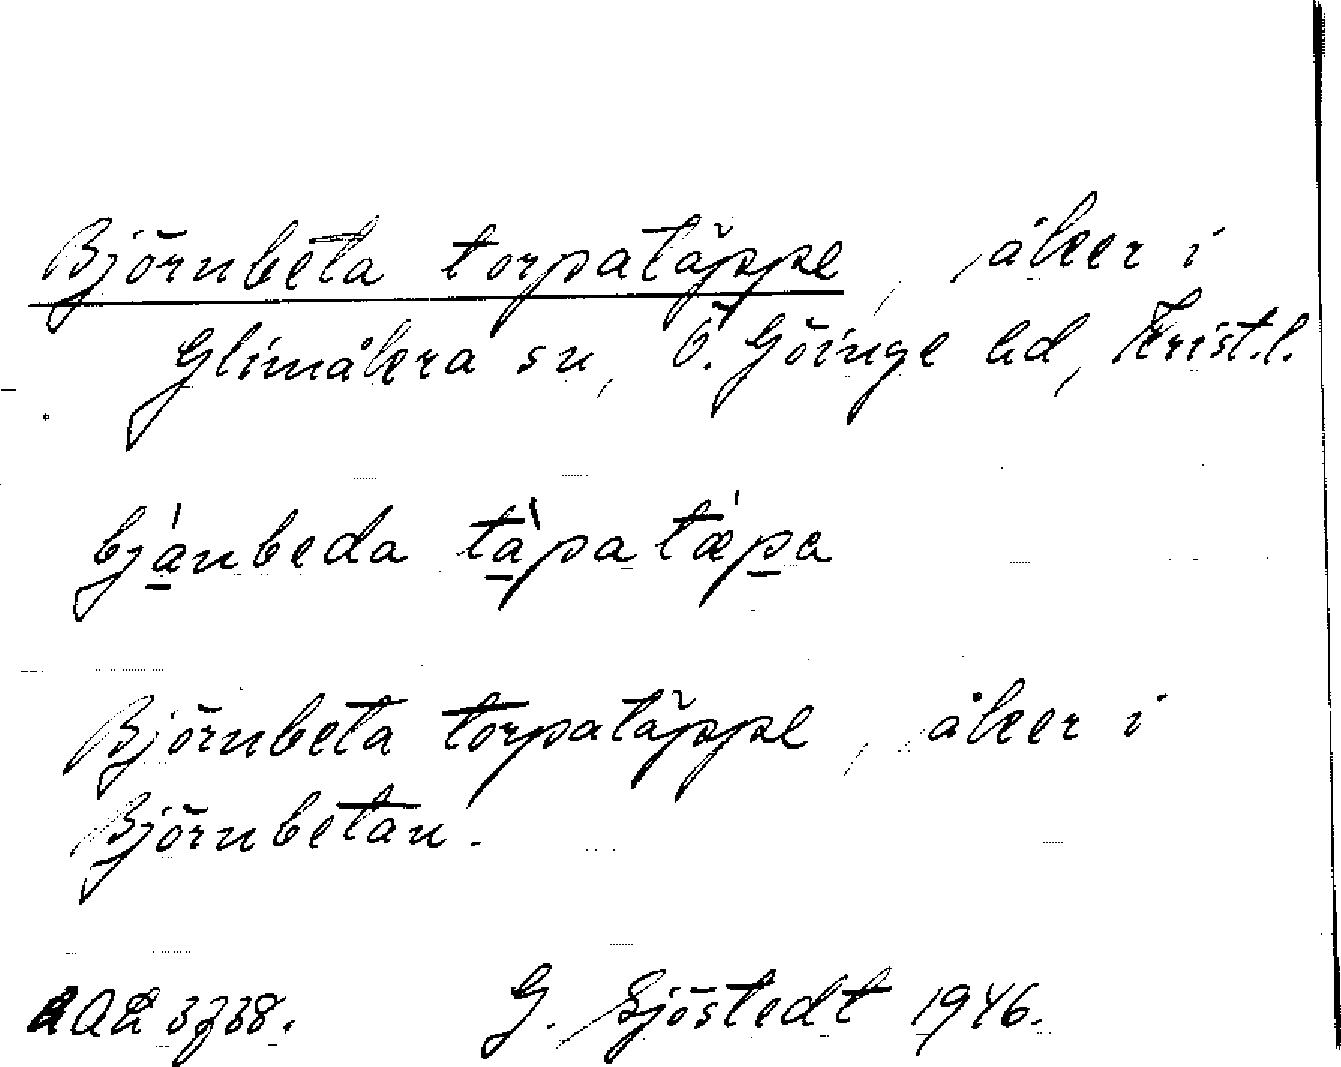 Björnbeta torpatäppe, åker i
Glimåkra sn, Ö. Göinge hd, Krist.l.
bjánbeda tàpatæpa
Björnbeta torpatäppe, åker i
Björnbetan.
3738. G. Sjöstedt 1946.